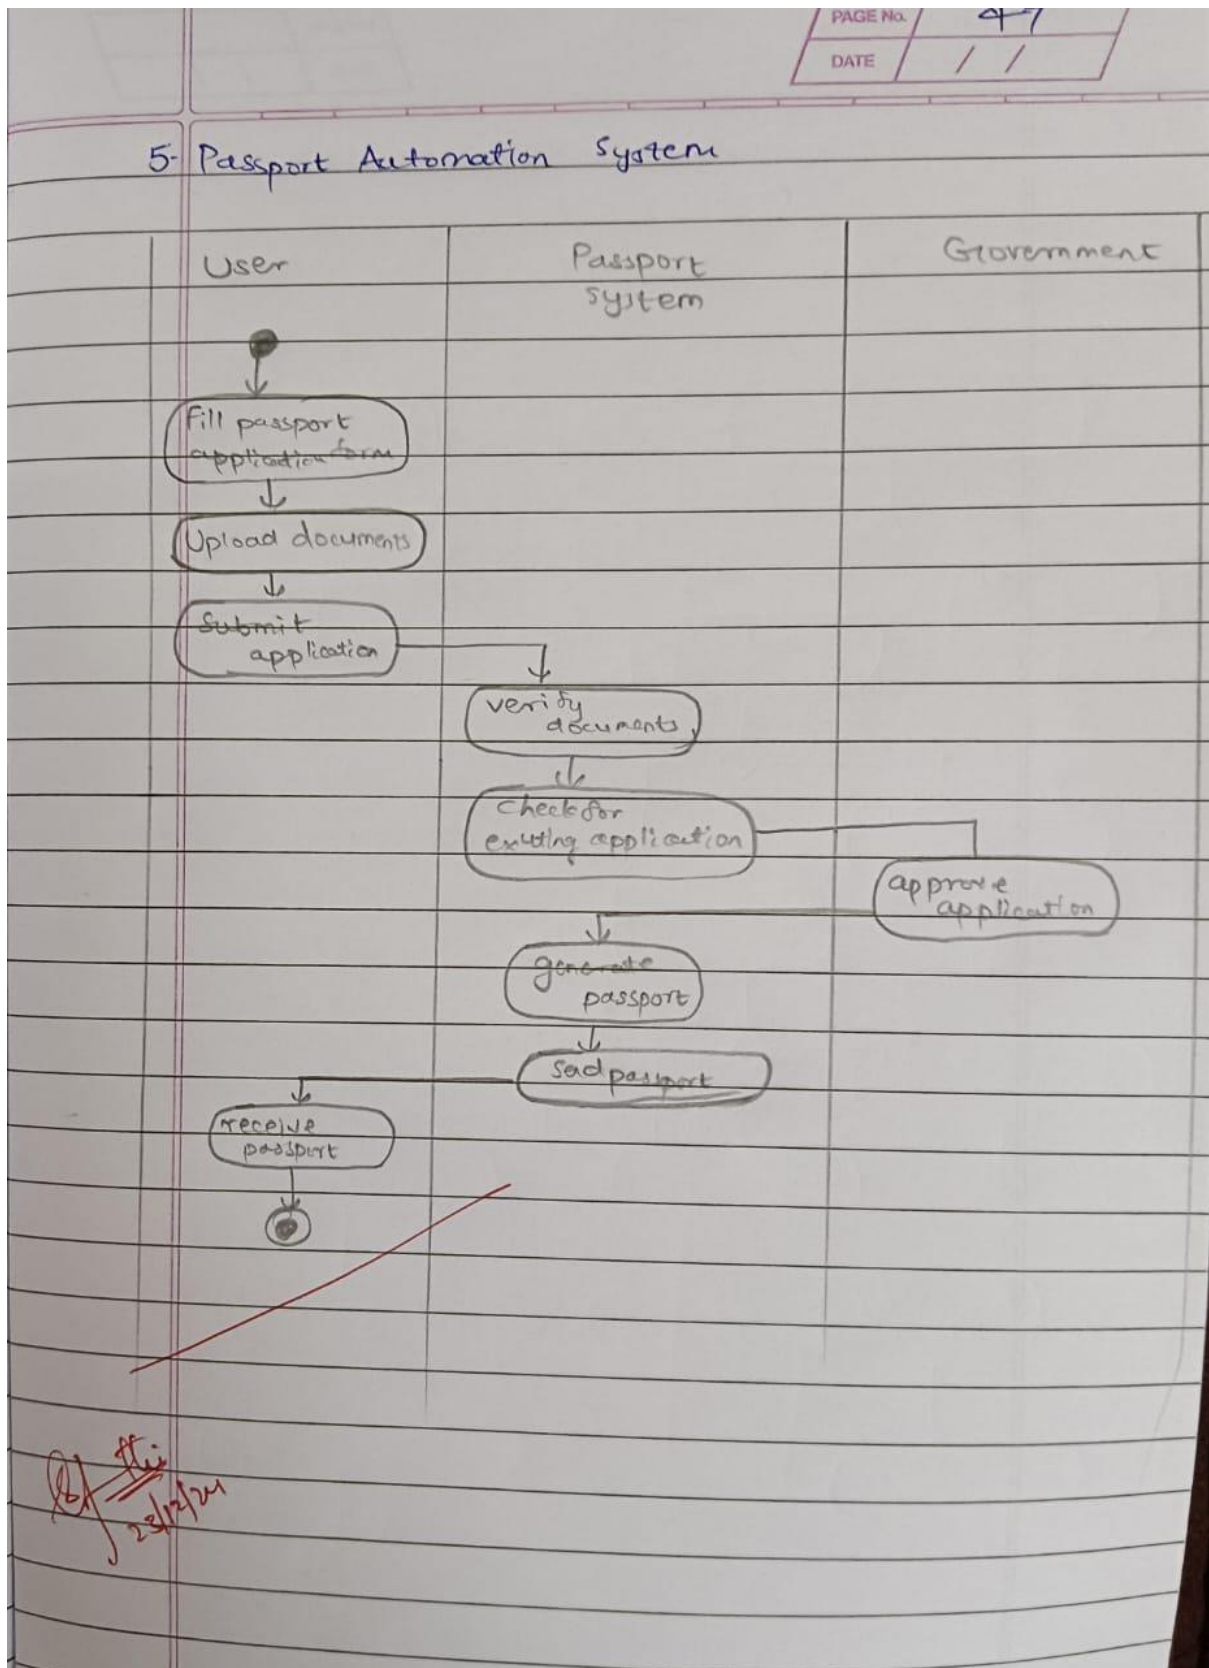 PAGE No.
DATE / /
5- Passport Automation System
User
Passport
system
Government
Fill passport
application form
Upload documents
Submit
application
verify
documents
Check for
existing application
approve
application
generate
passport
Send passport
receive
passport
23/12/24